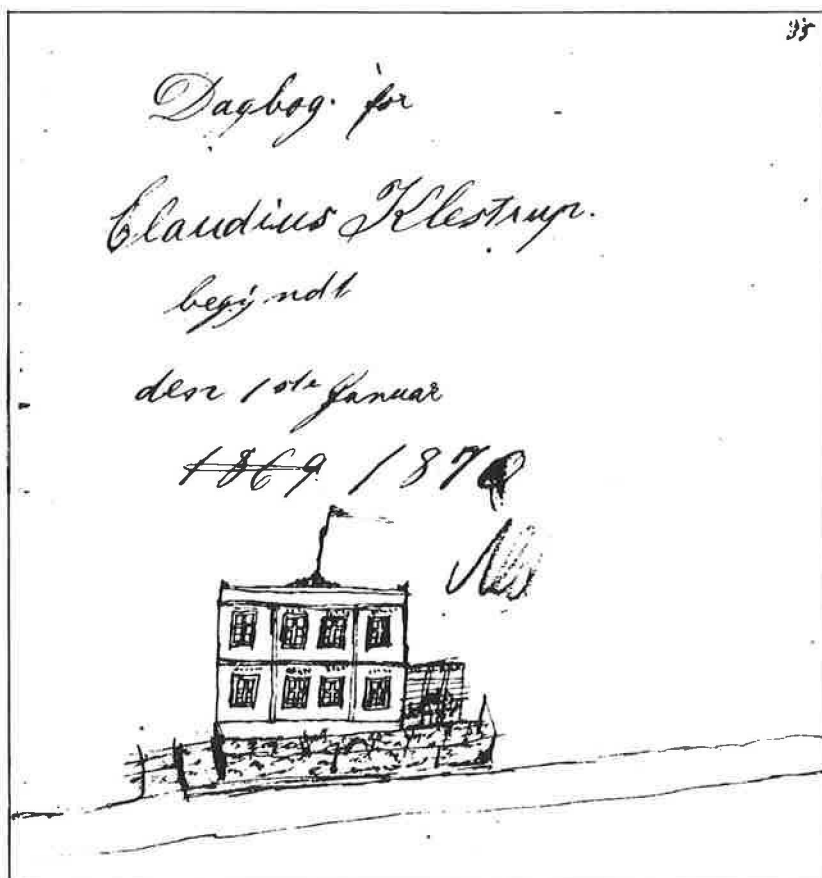 35
Dagbog. for
Claudius Klestrup.
begyndt
den 1ste Januar
1869 1870